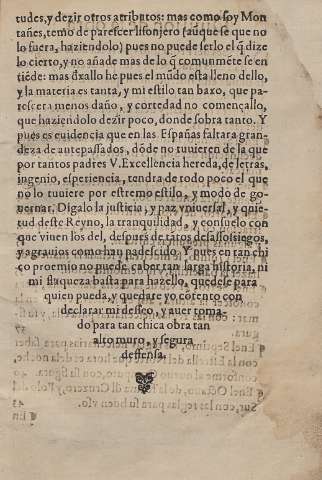 tudes, y dezir otros atributos: mas como soy Mon
tañes, temo de parescer lisonjero (auque se que no
lo fuera, haziendolo) pues no puede serlo el q̃ dize
lo cierto, y no añade mas de lo q̃ comunmẽte se en
tiẽde: mas dxallo he pues el mũdo esta lleno dello,
y la materia es tanta, y mi estilo tan baxo, que pa-
rescera menos daño, y cortedad no començallo,
que haziendolo dezir poco, donde sobra tanto. Y
pues es euidencia que en las Españas faltara gran-
deza de antepassados, dõde no tuuieren de la que
por tantos padres V. Excellencia hereda, de letras,
ingenio, esperiencia, tendra de todo poco el que
no lo tuuiere por estremo estilo, y modo de go-
uernar. Digalo la justicia, y paz vniuersal, y quie-
tud deste Reyno, la tranquilidad, y consuelo con
que viuen los del, después de tãtos desassossiegos,
y agrauios como han padescido. Y pues en tan chi
co proemio no puede caber tan larga historia, ni
mi flaqueza basta para hazello, quedese para
quien pueda, y quedare yo cõtento con
declarar mi desseo, y auer toma-
do para tan chica obra tan
alto muro, y segura
deffensa.